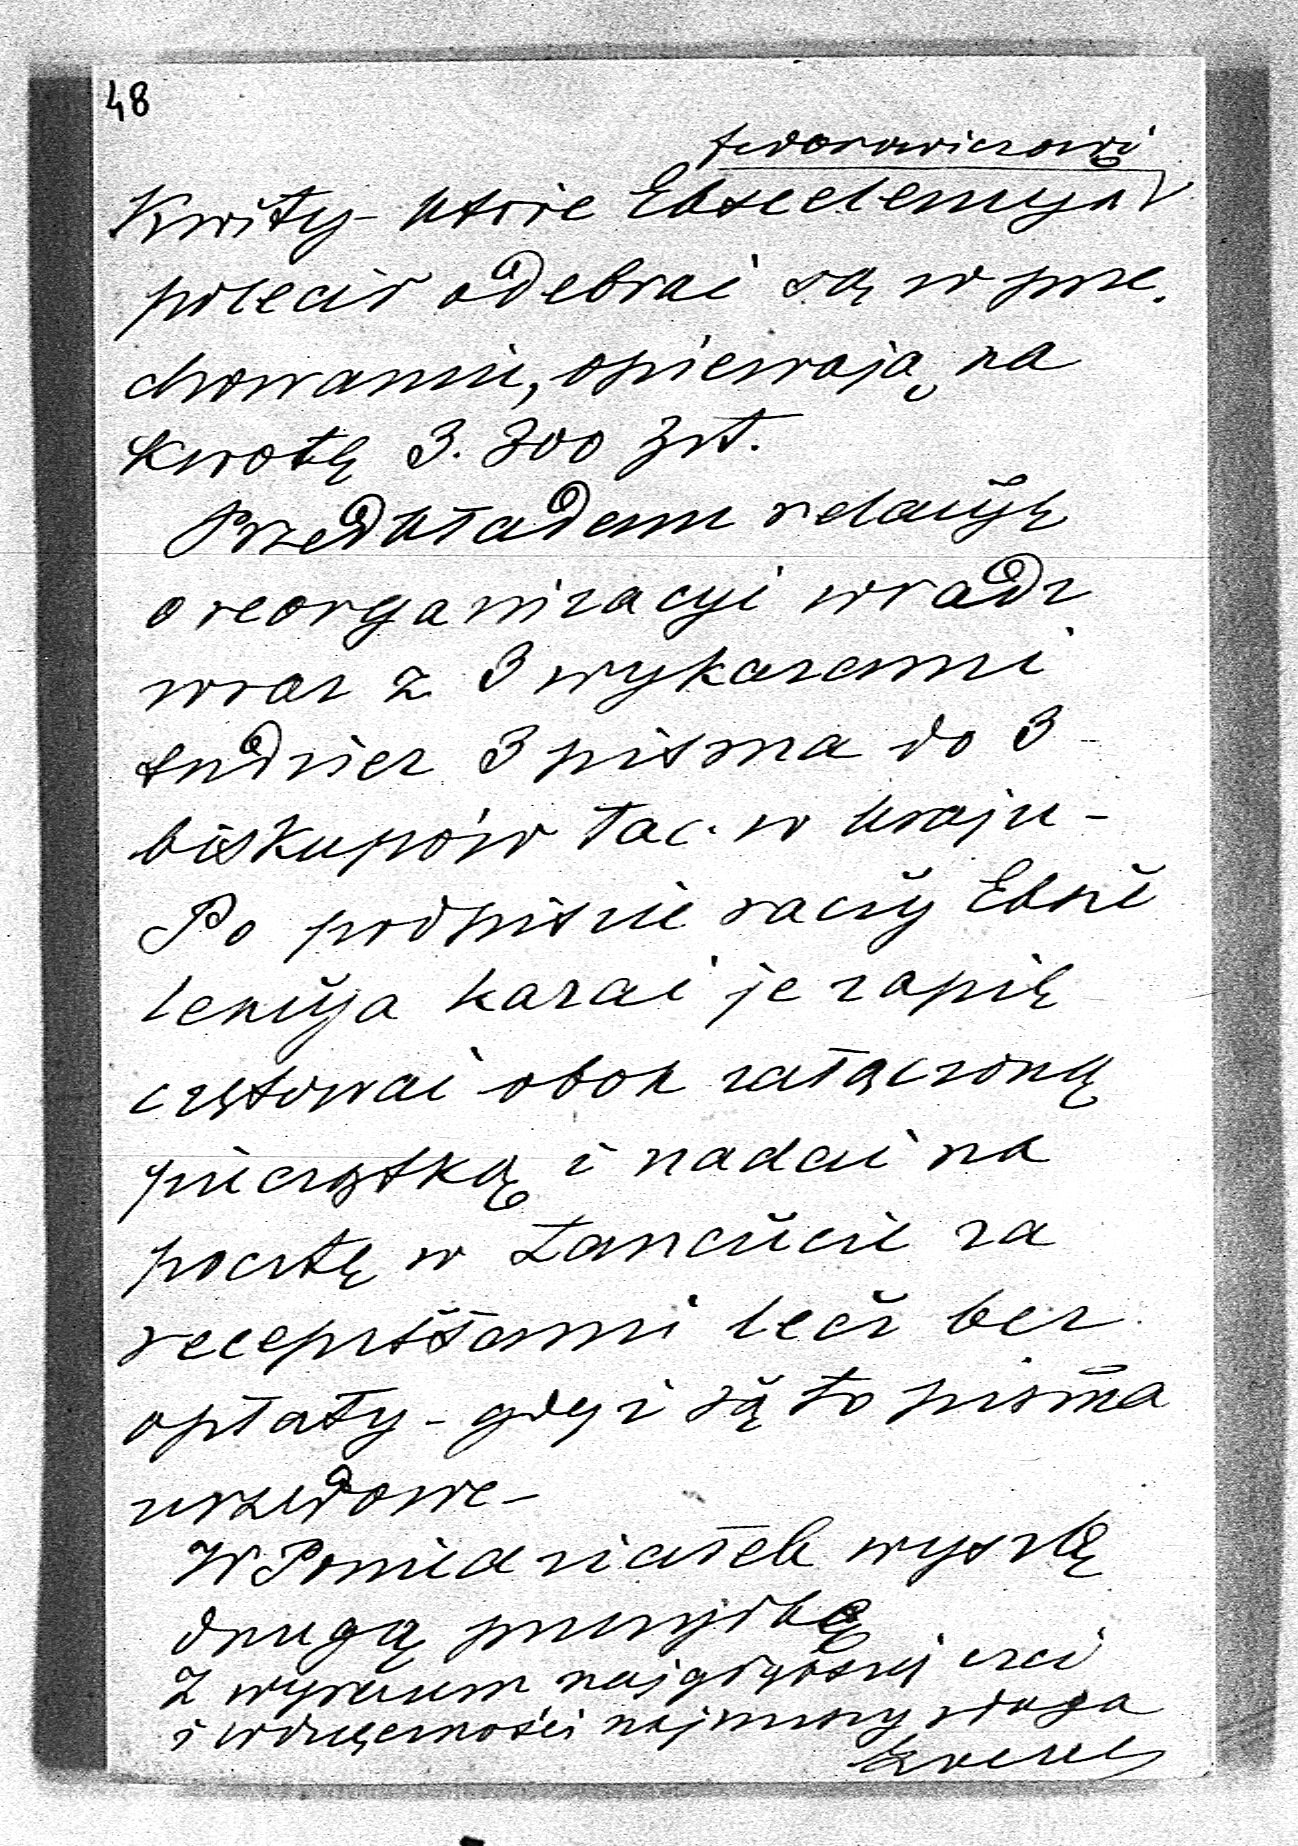 48
Fedorowiczowi
Kwity - które Ekscelencya
polecił odebrać są w prze.
chowaniu, opiewają na
kwotę 3.300 złt.
Przedkładam relacyę
o reorganizacyi władz
wraz z 3 wykazami
tudzież 3 pisma do 3 -
biskupów łac. w kraju -
Po podpisie raczy Eksce
lencya kazać je zapie
czętować obok załączoną
pieczątką i nadać na
pocztę w Łańcucie za
recepisami lecz bez
opłaty - gdyż są to pisma
urzędowe -
W Poniedziałek wyszlę
drugą przesyłkę
Z wyrazem najgłębszej czci
i wdzięczności najniższy sługa